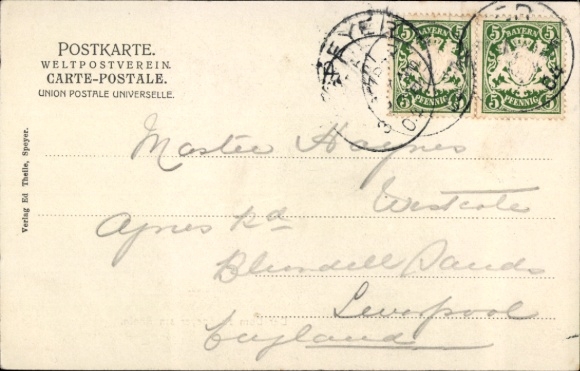 POSTKARTE.
WELTPOSTVEREIN.
CARTE-POSTALE.
UNION POSTALE UNIVERSELLE.
Verlag Ed Theile, Speyer.
SPEYER
5 BAYERN 5
5 PFENNIG 5
5 BAYERN 5
5 PFENNIG 5
Master Haynes
Westcote
Agnes Rd
Blundell Sands
Liverpool
England